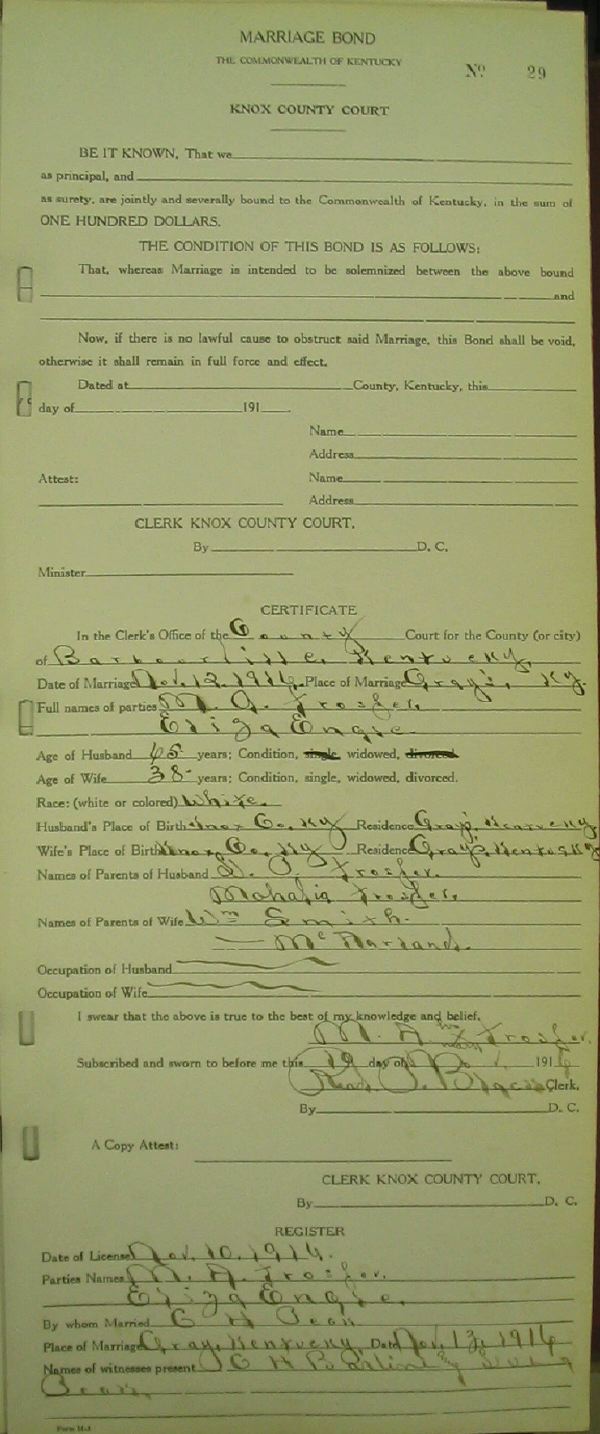 MARRIAGE BOND
THE COMMONWEALTH OF KENTUCKY
No. 29
KNOX COUNTY COURT
BE IT KNOWN, That we
as principal, and
as surety, are jointly and severally bound to the Commonwealth of Kentucky, in the sum of
ONE HUNDRED DOLLARS.
THE CONDITION OF THIS BOND IS AS FOLLOWS:
That, whereas Marriage is intended to be solemnized between the above bound
and
Now, if there is no lawful cause to obstruct said Marriage, this Bond shall be void,
otherwise it shall remain in full force and effect.
Dated at County, Kentucky, this
day of 191
Name
Address
Attest: Name
Address
CLERK KNOX COUNTY COURT.
By D. C.
Minister
CERTIFICATE
In the Clerk's Office of the County Court for the County (or city)
of Barbourville, Kentucky,
Date of Marriage Nov. 12, 1916. Place of Marriage Gray's, Ky.
Full names of parties M. A. Trosper.
Eliza Engle.
Age of Husband 45 years; Condition, single, widowed, divorced.
Age of Wife 38 years; Condition, single, widowed, divorced.
Race: (white or colored) White.
Husband's Place of Birth Knox Co, Ky Residence Gray, Kentucky
Wife's Place of Birth Knox, Co, Ky Residence Gray's, Kentucky
Names of Parents of Husband Trosper.
Mahalia Trosper.
Names of Parents of Wife Wm Smith.
— McFarland.
Occupation of Husband
Occupation of Wife
I swear that the above is true to the best of my knowledge and belief.
M. A. his x mark Trosper.
Subscribed and sworn to before me this 10 day of Nov. 1916
Clerk.
By D. C.
A Copy Attest:
CLERK KNOX COUNTY COURT.
By D. C.
REGISTER
Date of License Nov. 10, 1916.
Parties Names M. A. Trosper.
Eliza Engle.
By whom Married C H Dean
Place of Marriage Gray, Kentucky, Date Nov. 12, 1916
Names of witnesses present
Dean.